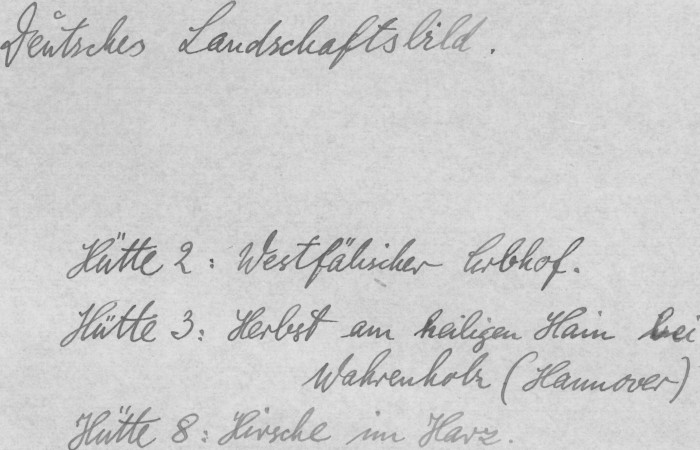 Deutsches Landschaftsbild.
Hütte 2: Westfälischer Erbhof.
Hütte 3: Herbst am heiligen Hain bei
Wahrenholz (Hannover)
Hütte 8: Hirsche im Harz.